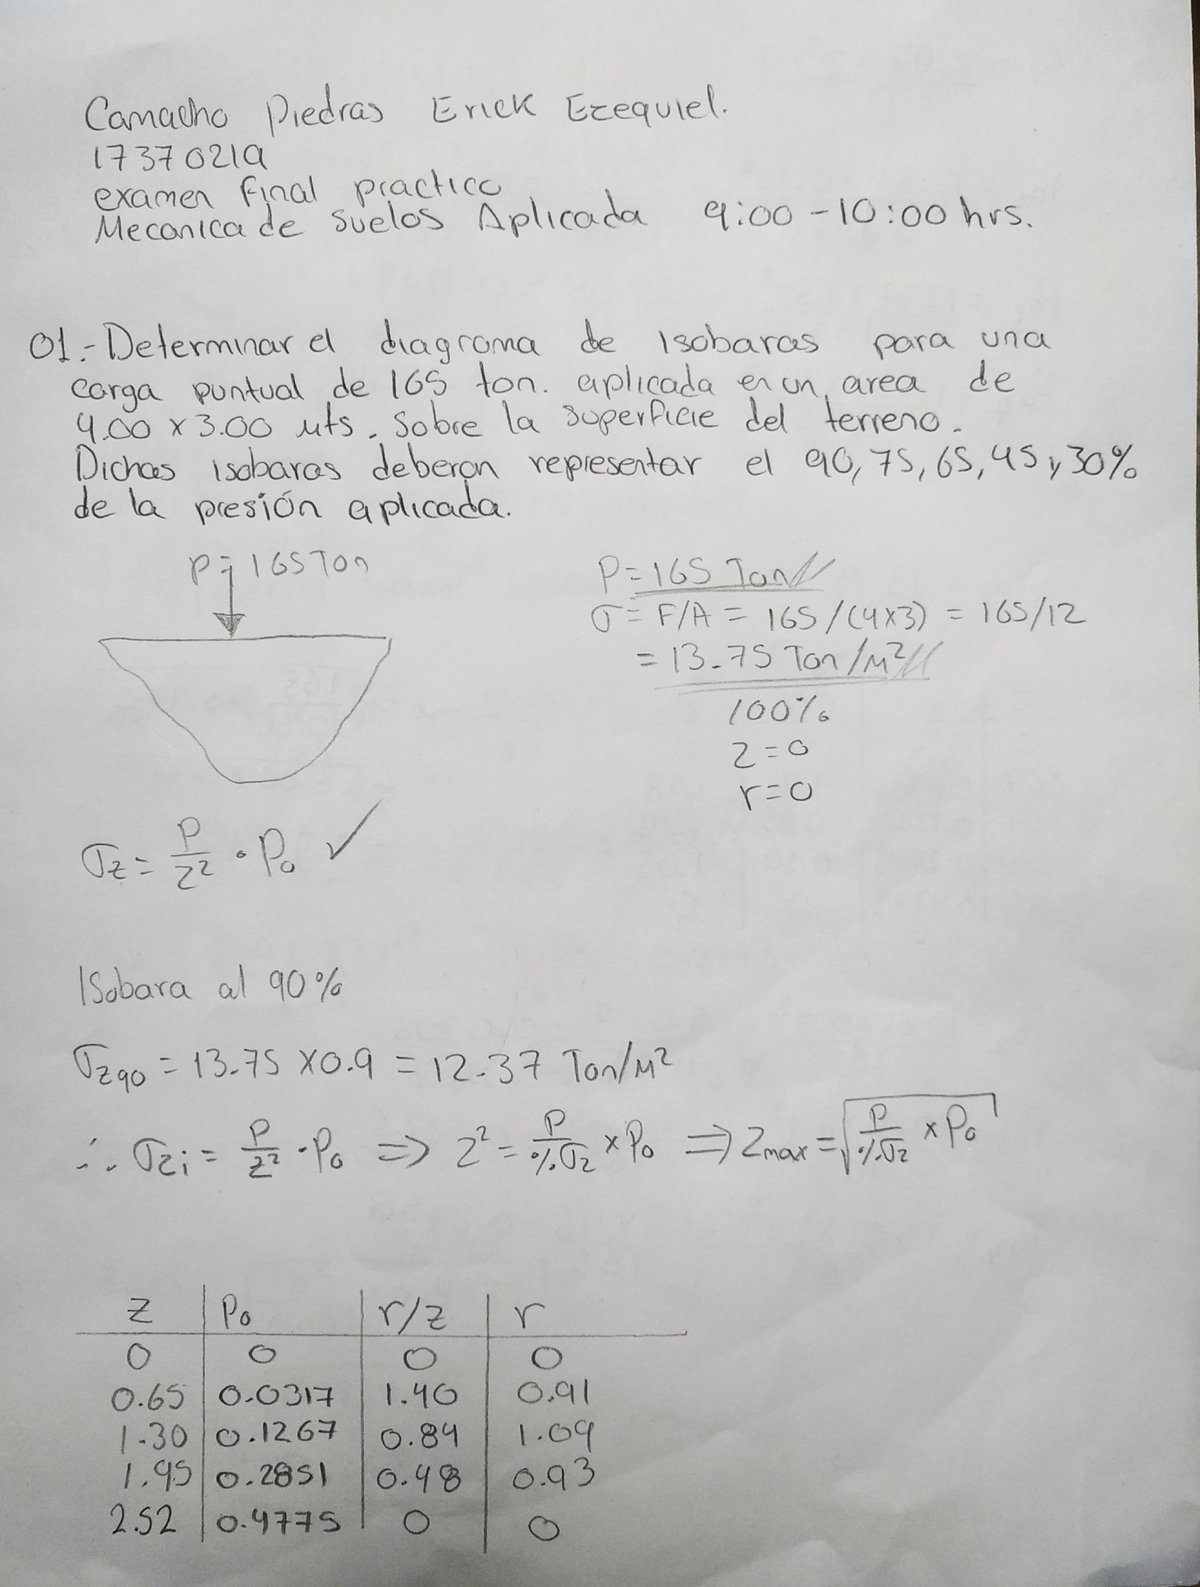 Camacho Piedras Erick Ezequiel.
17370219
examen final practico
Mecanica de suelos Aplicada 9:00-10:00 hrs.
01.- Determinar el diagrama de isobaras para una
carga puntual de 165 ton. aplicada en un area de
4.00 x 3.00 mts. Sobre la superficie del terreno.
Dichas isobaras deberan representar el 90, 75, 65, 45 y 30%
de la presión aplicada.
P=165 Ton
P=165 Ton
σ=F/A = 165/(4x3) = 165/12
= 13.75 Ton/M²
100%
z=0
r=0
σz = P/z² · Po ✓
Isobara al 90%
σz90 = 13.75 x0.9 = 12.37 Ton/M²
∴ σzi = P/z² · Po => z² = P/%σz x Po => Zmax = √(P/%σz x Po)
z Po r/z r
0 0 0 0
0.65 0.0317 1.40 0.91
1.30 0.1267 0.84 1.09
1.95 0.2851 0.48 0.93
2.52 0.4775 0 0